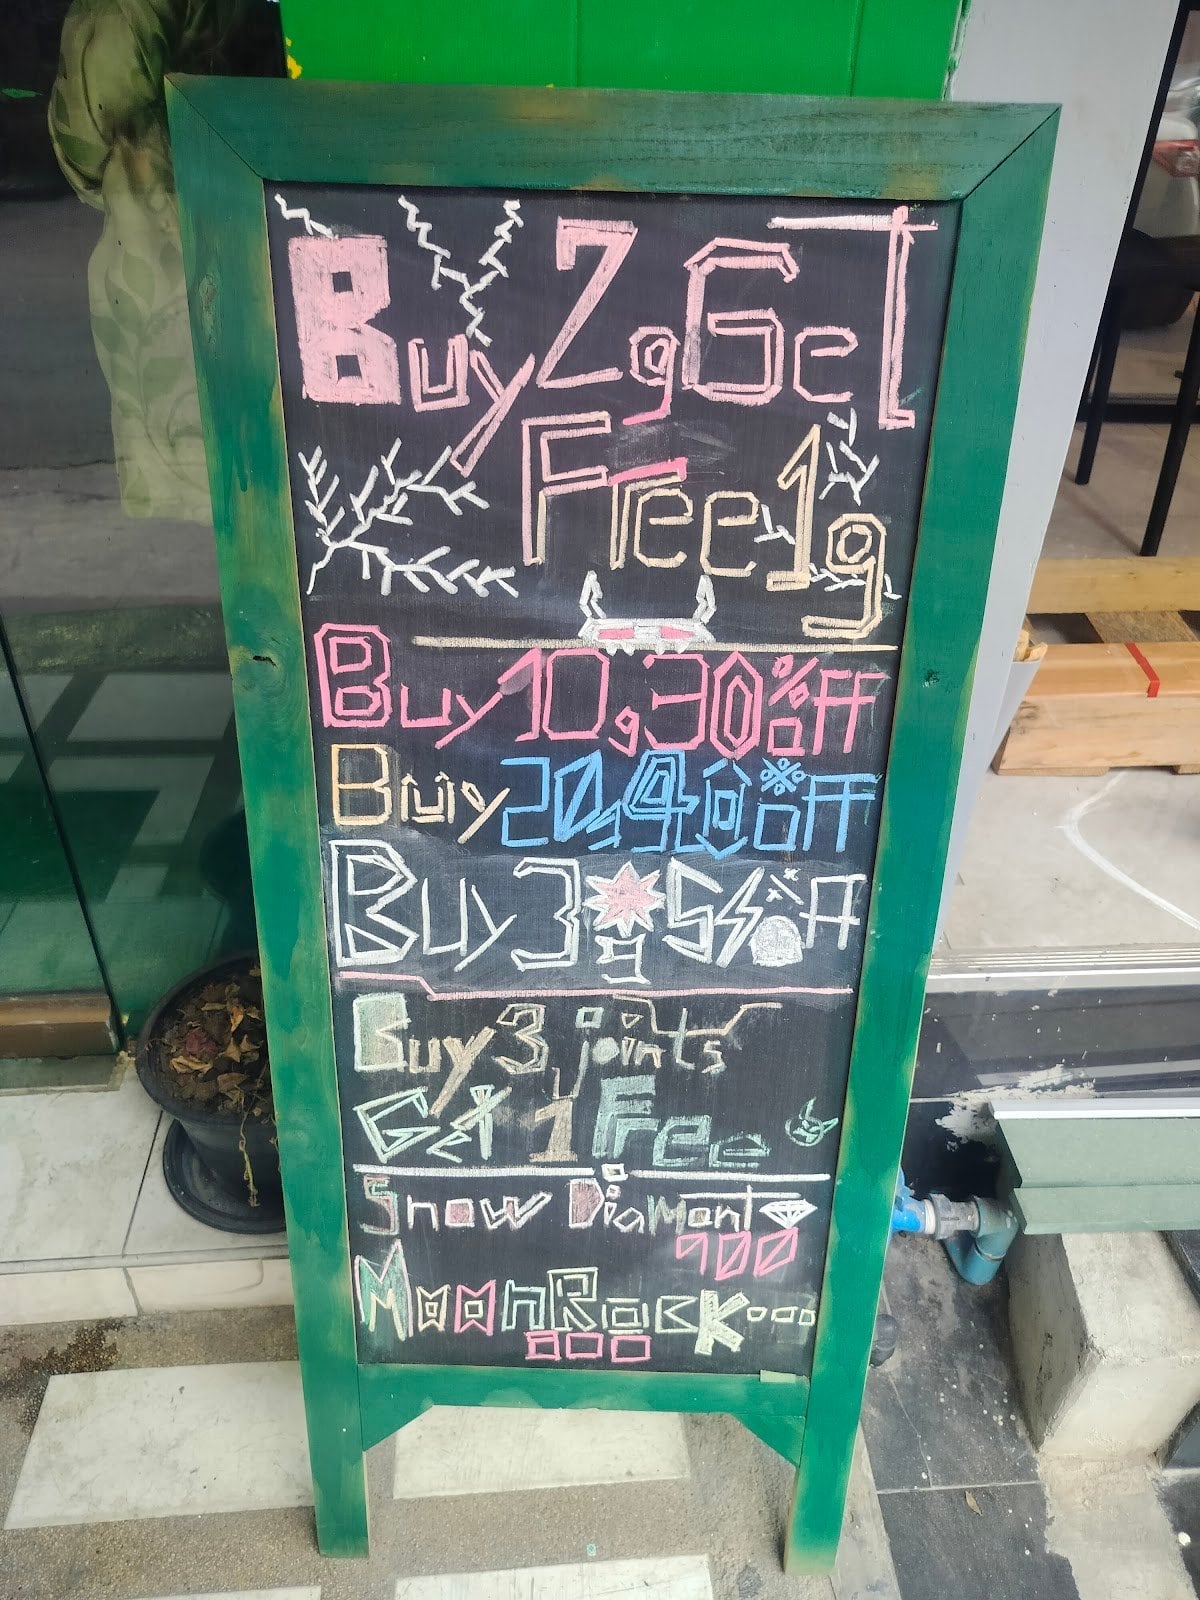 Buy 2g Get
Free 1g
Buy 10g 30% off
Buy 20g 40% off
Buy 3 g 55% off
Buy 3 joints
Get 1 Free
Snow Diamant
900
MoonRock
800